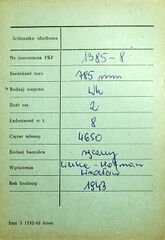 Jednostka służbowa
Nr inwentarza PKP 1385-8
Szerokość toru 785 mm
Rodzaj wagonu Wh
Ilość osi 2
Ładowność w t. 8
Ciężar własny 4650
Rodzaj hamulca ręczny
Wytwórnia Linke-Hofman
Wrocław
Rok budowy 1943